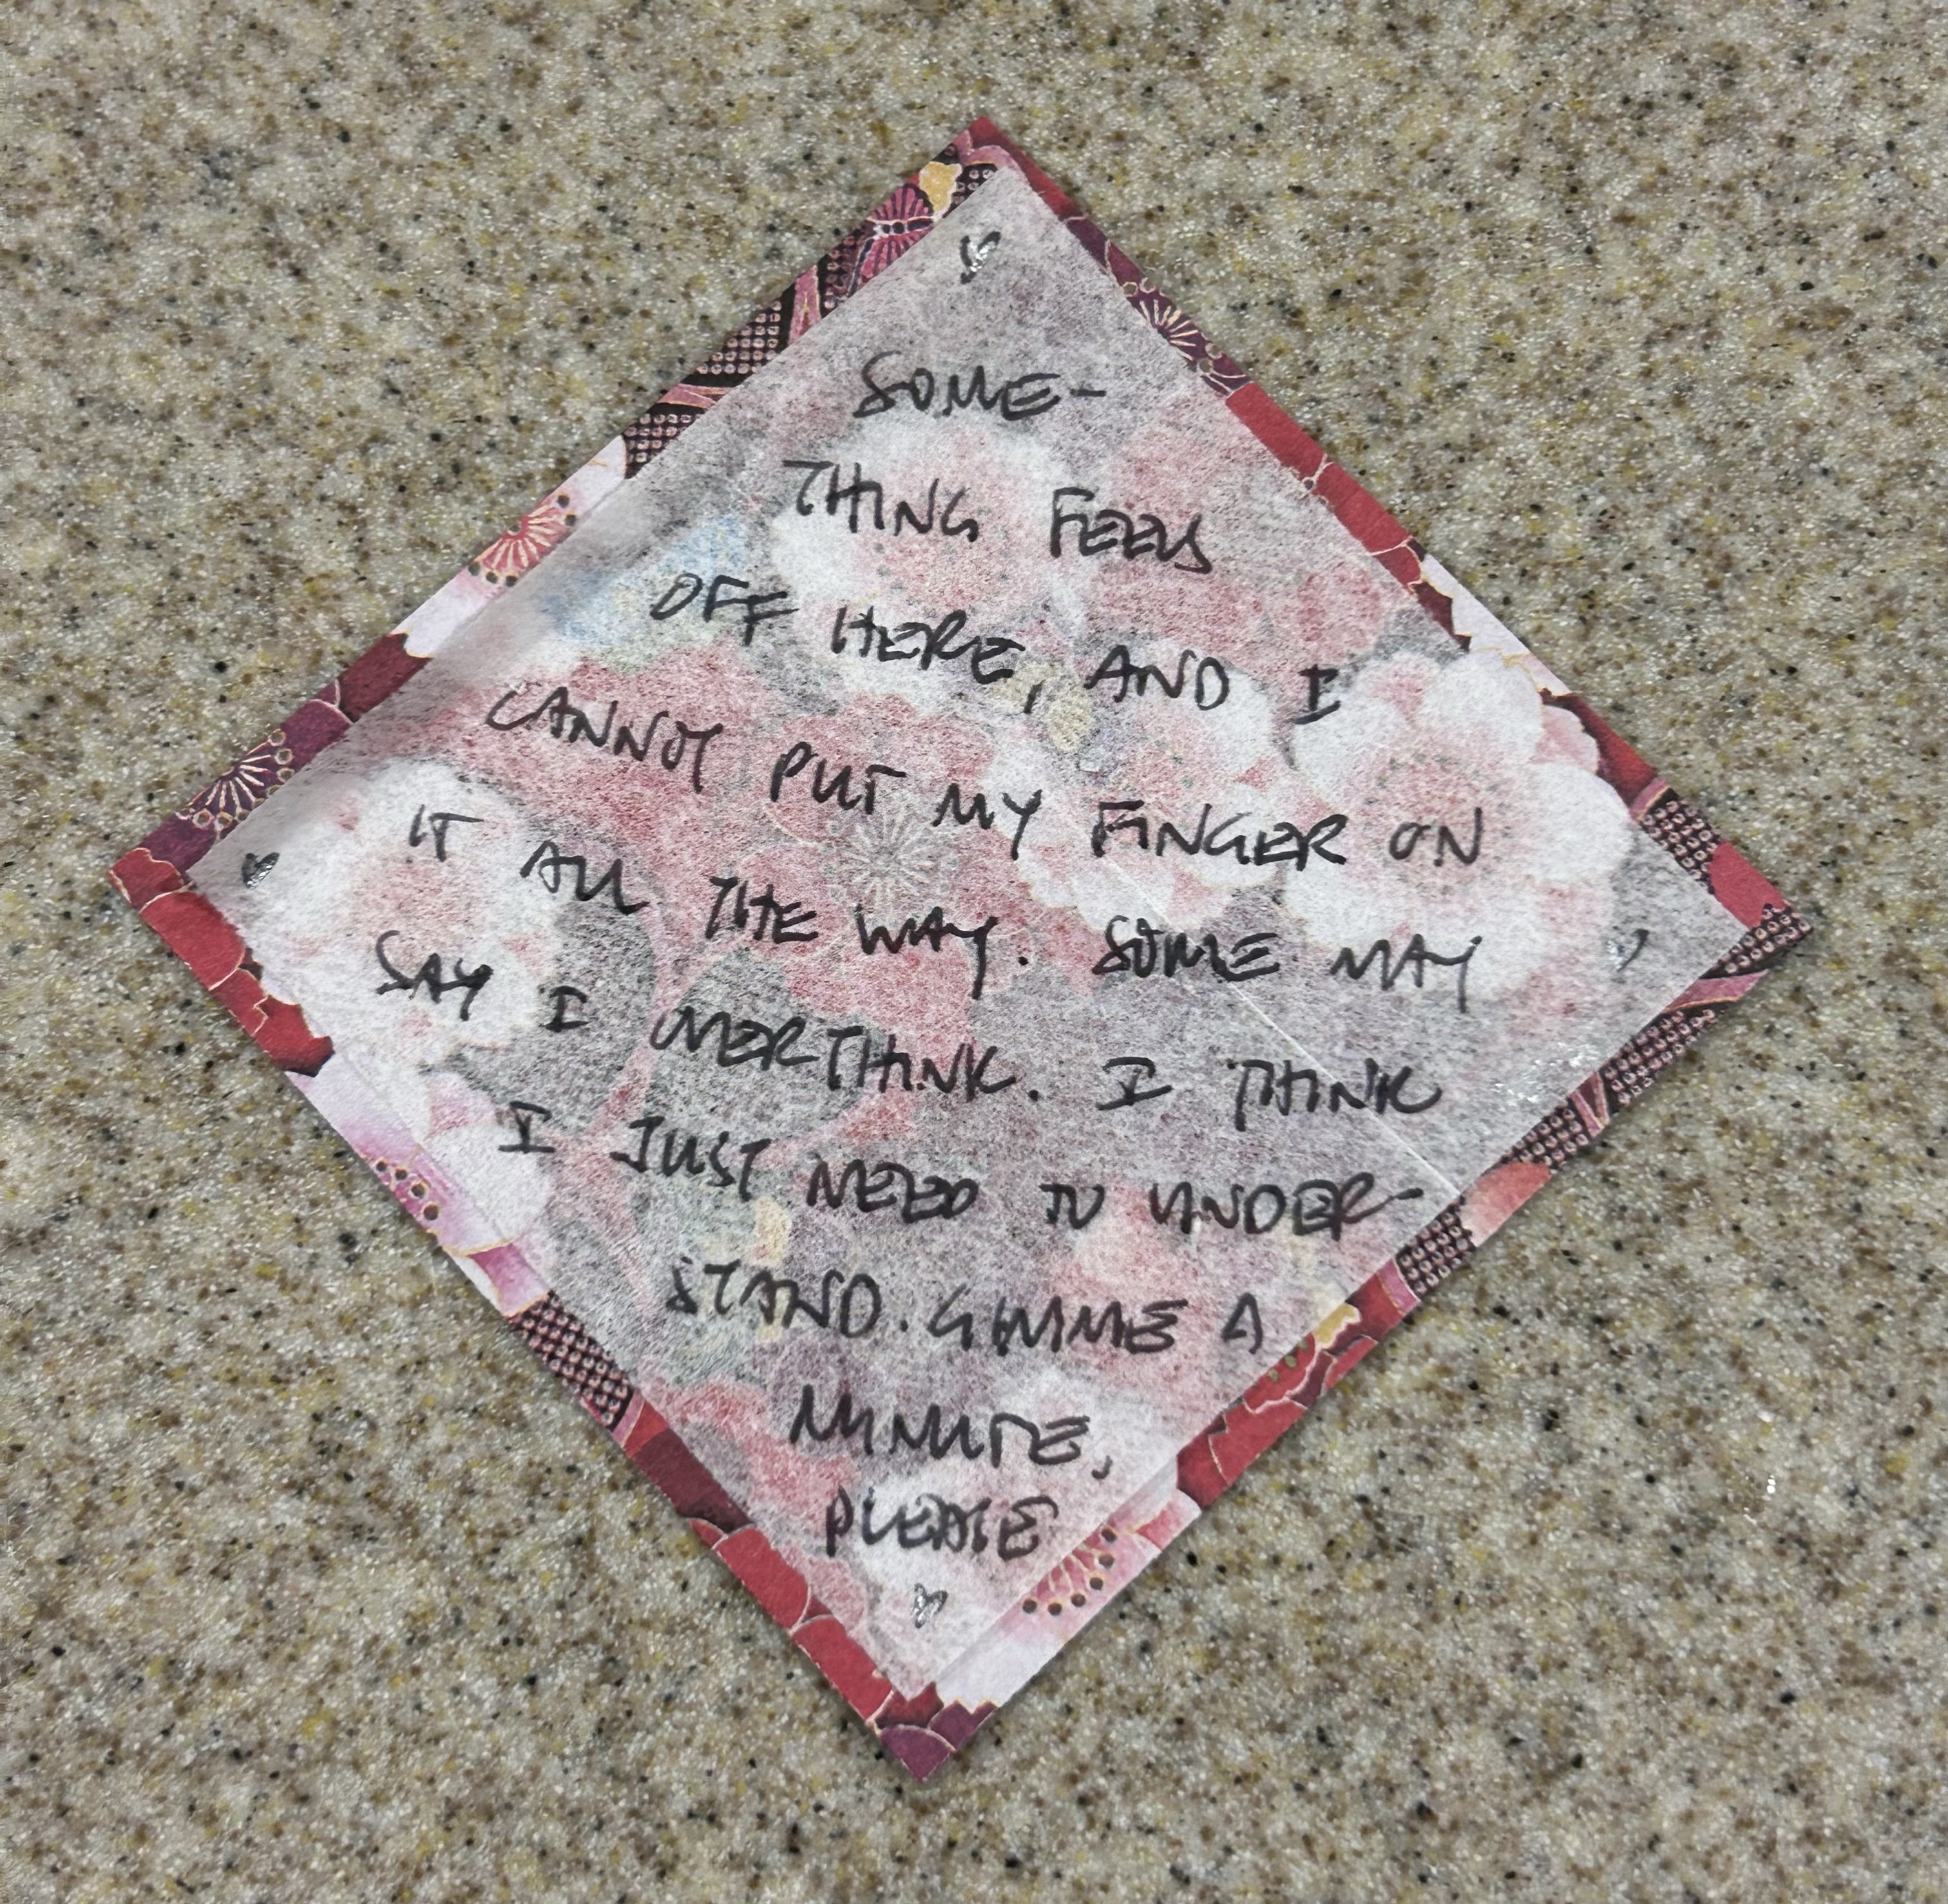 SOME-
THING FEELS
OFF HERE, AND I
CANNOT PUT MY FINGER ON
IT ALL THE WAY. SOME MAY
SAY I OVERTHINK. I THINK
I JUST NEED TO UNDER-
STAND. GIMME A
MINUTE,
PLEASE